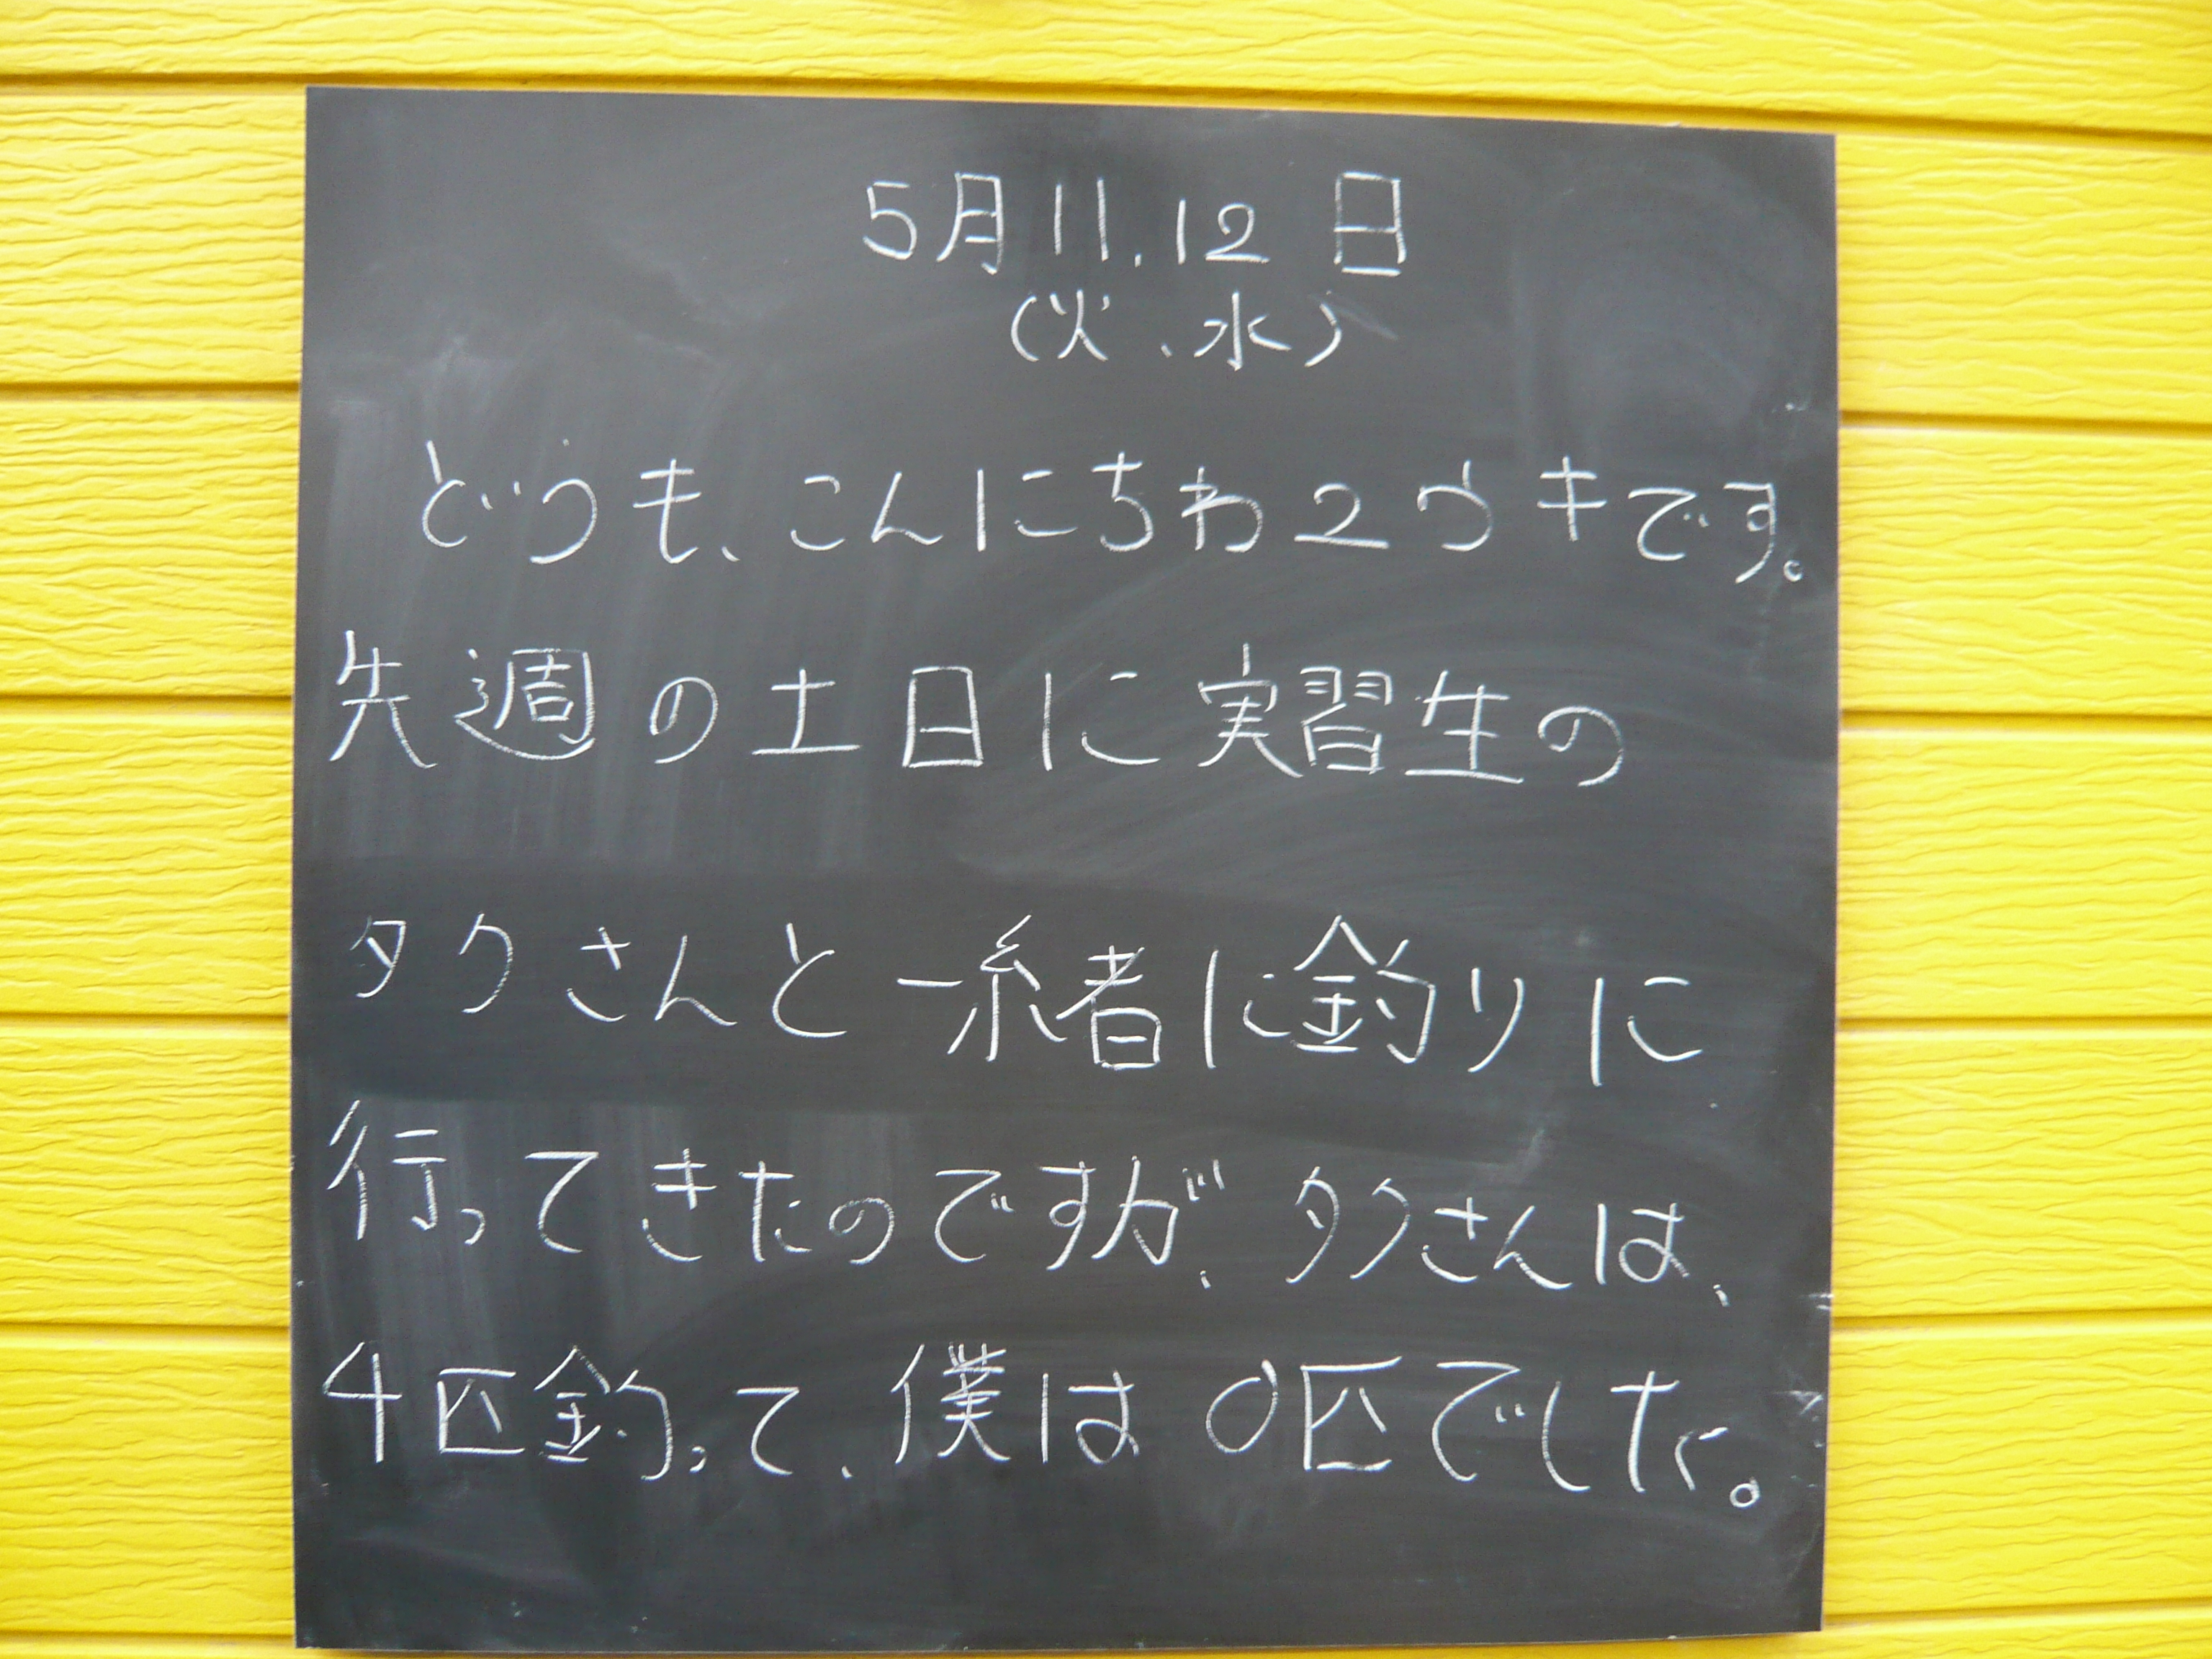 5月11.12日
(火、水)
どうも、こんにちわユウキです。
先週の土日に実習生の
タクさんと一緒に釣りに
行ってきたのですが、タクさんは、
4匹釣って、僕は0匹でした。